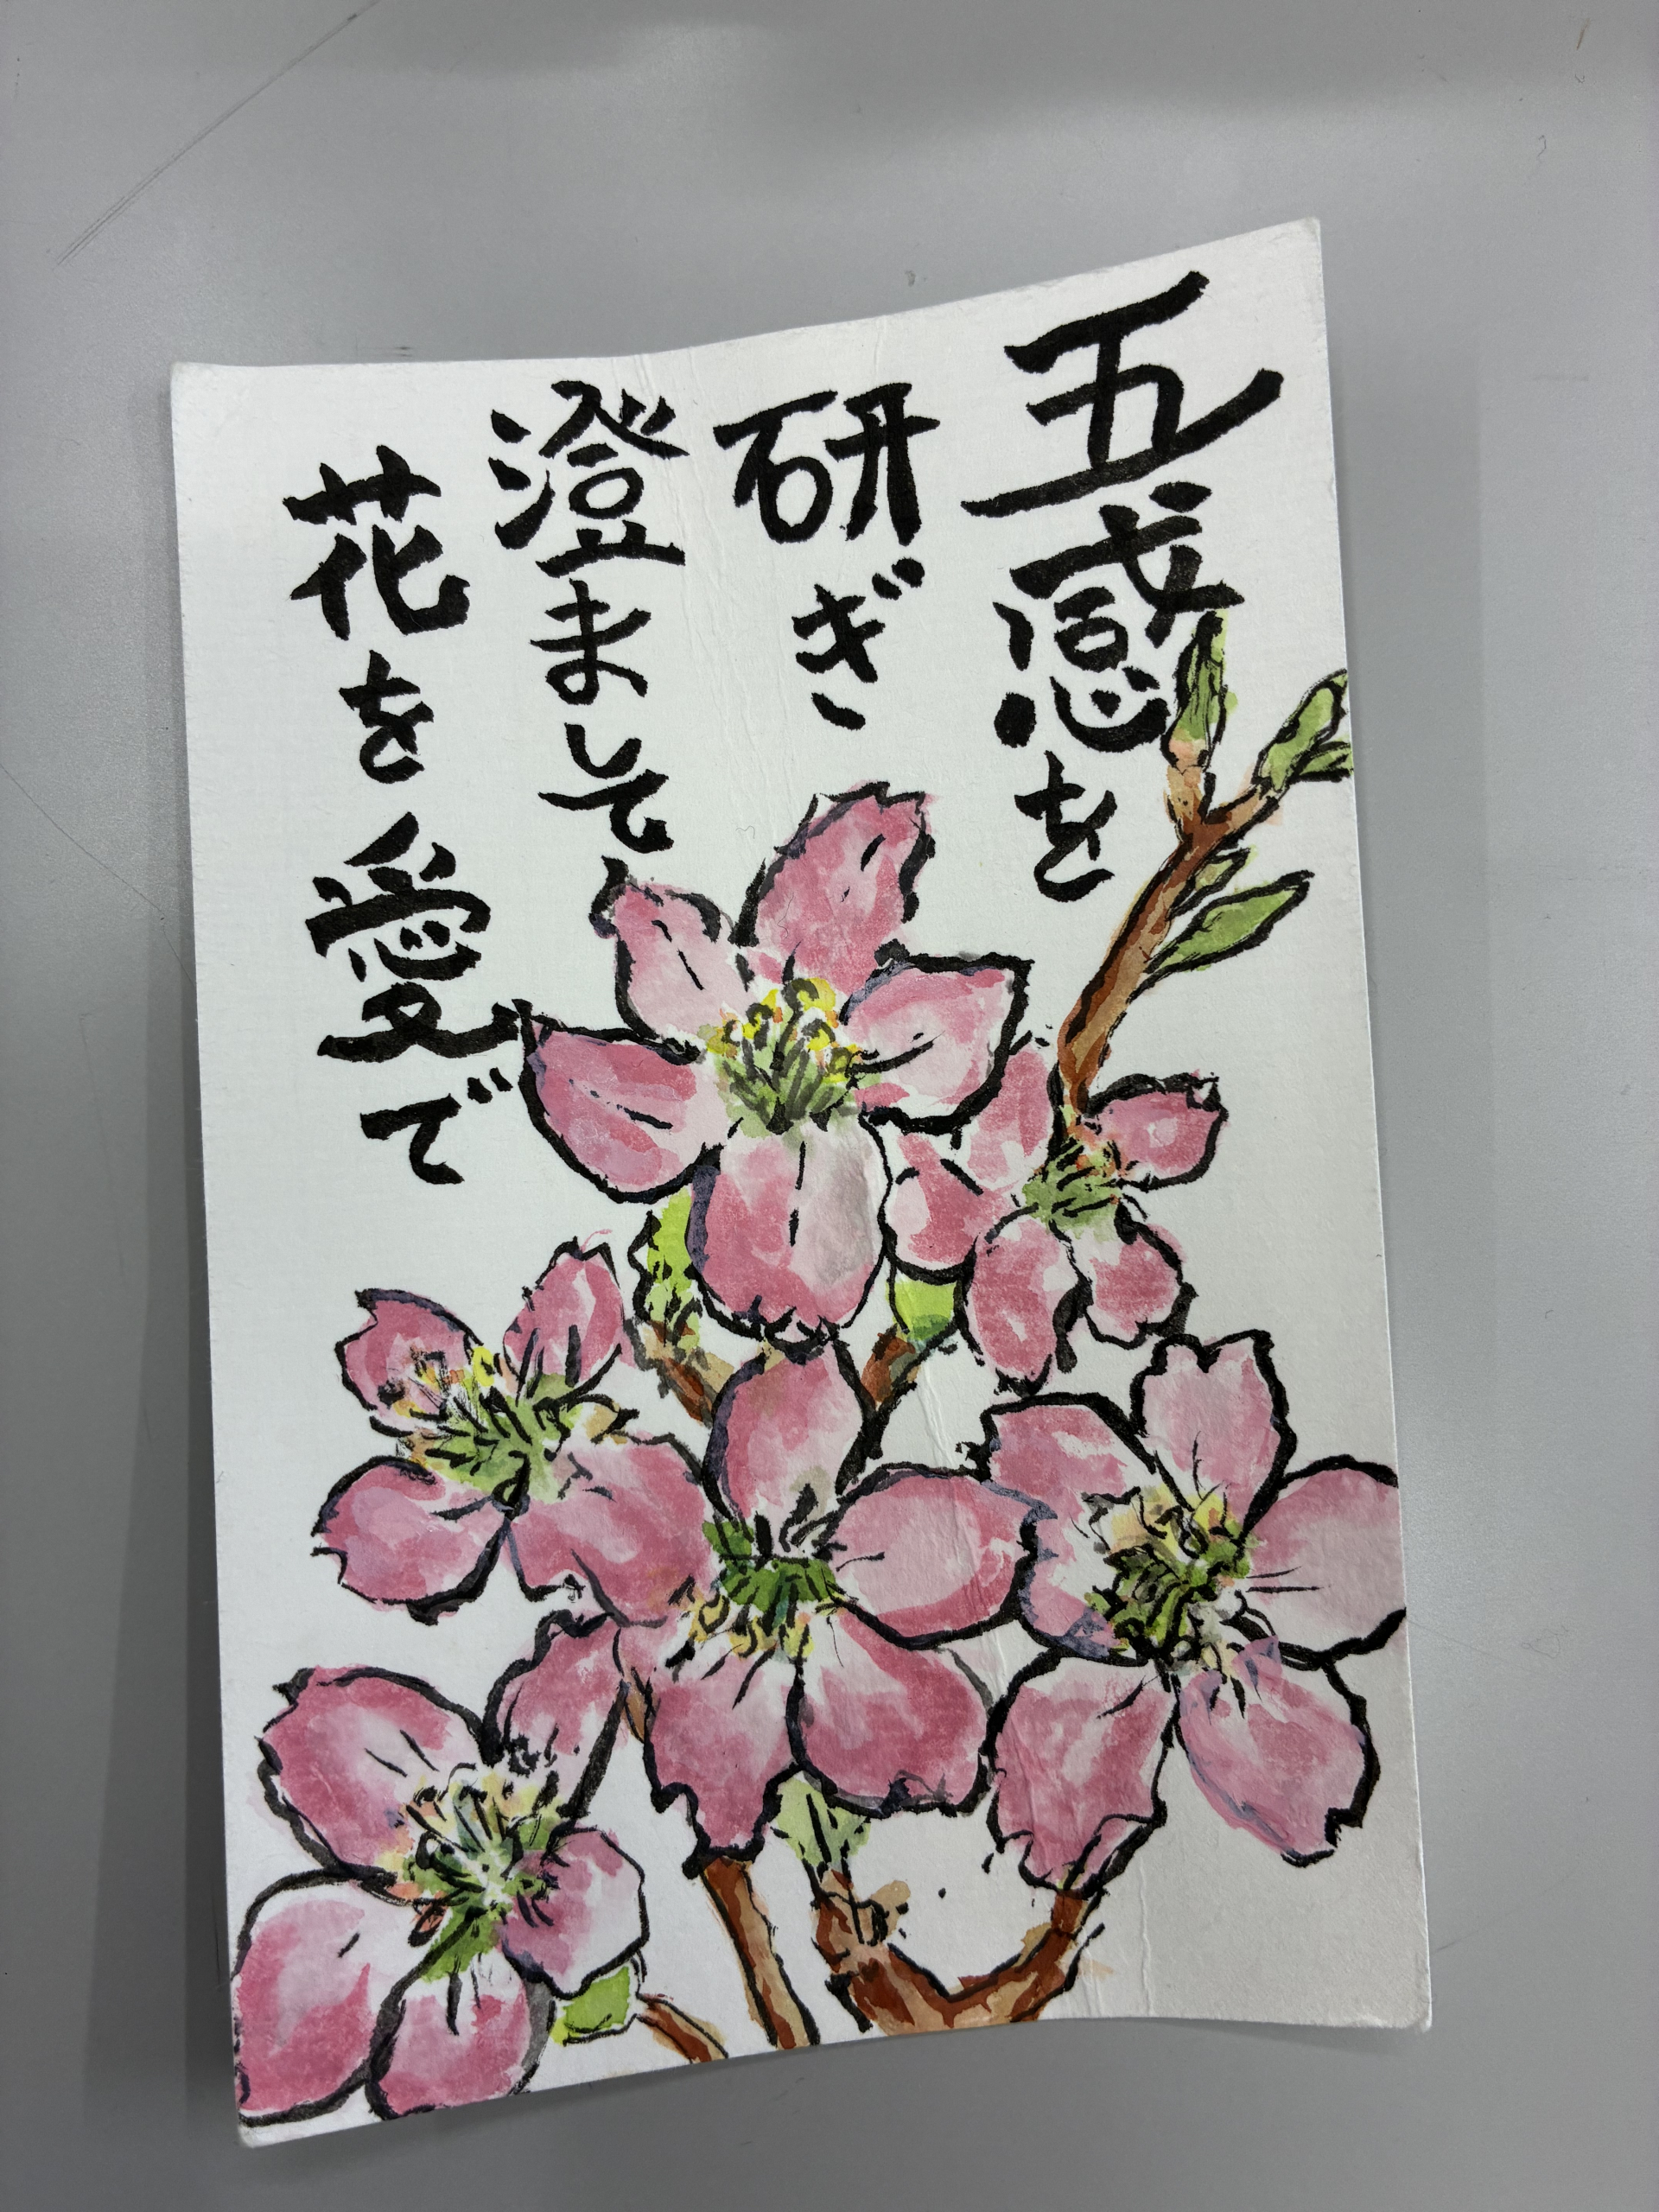 五感を
研ぎ
澄まして
花を愛で